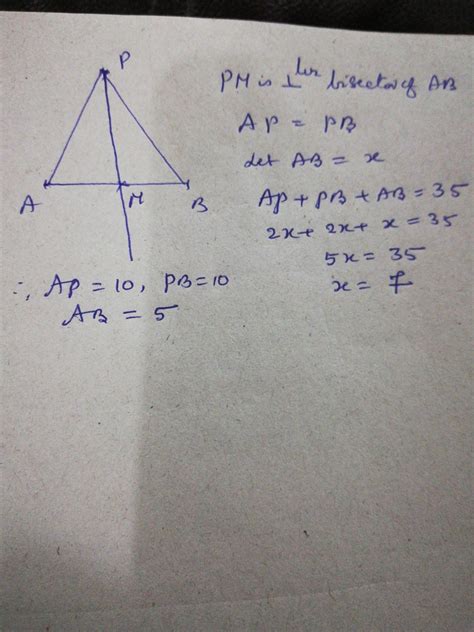 P
A M B
PM is ⊥ler bisector of AB
AP = PB
let AB = x
AP + PB + AB = 35
2x + 2x + x = 35
5x = 35
x = 7
∴, AP = 10, PB = 10
AB = 5